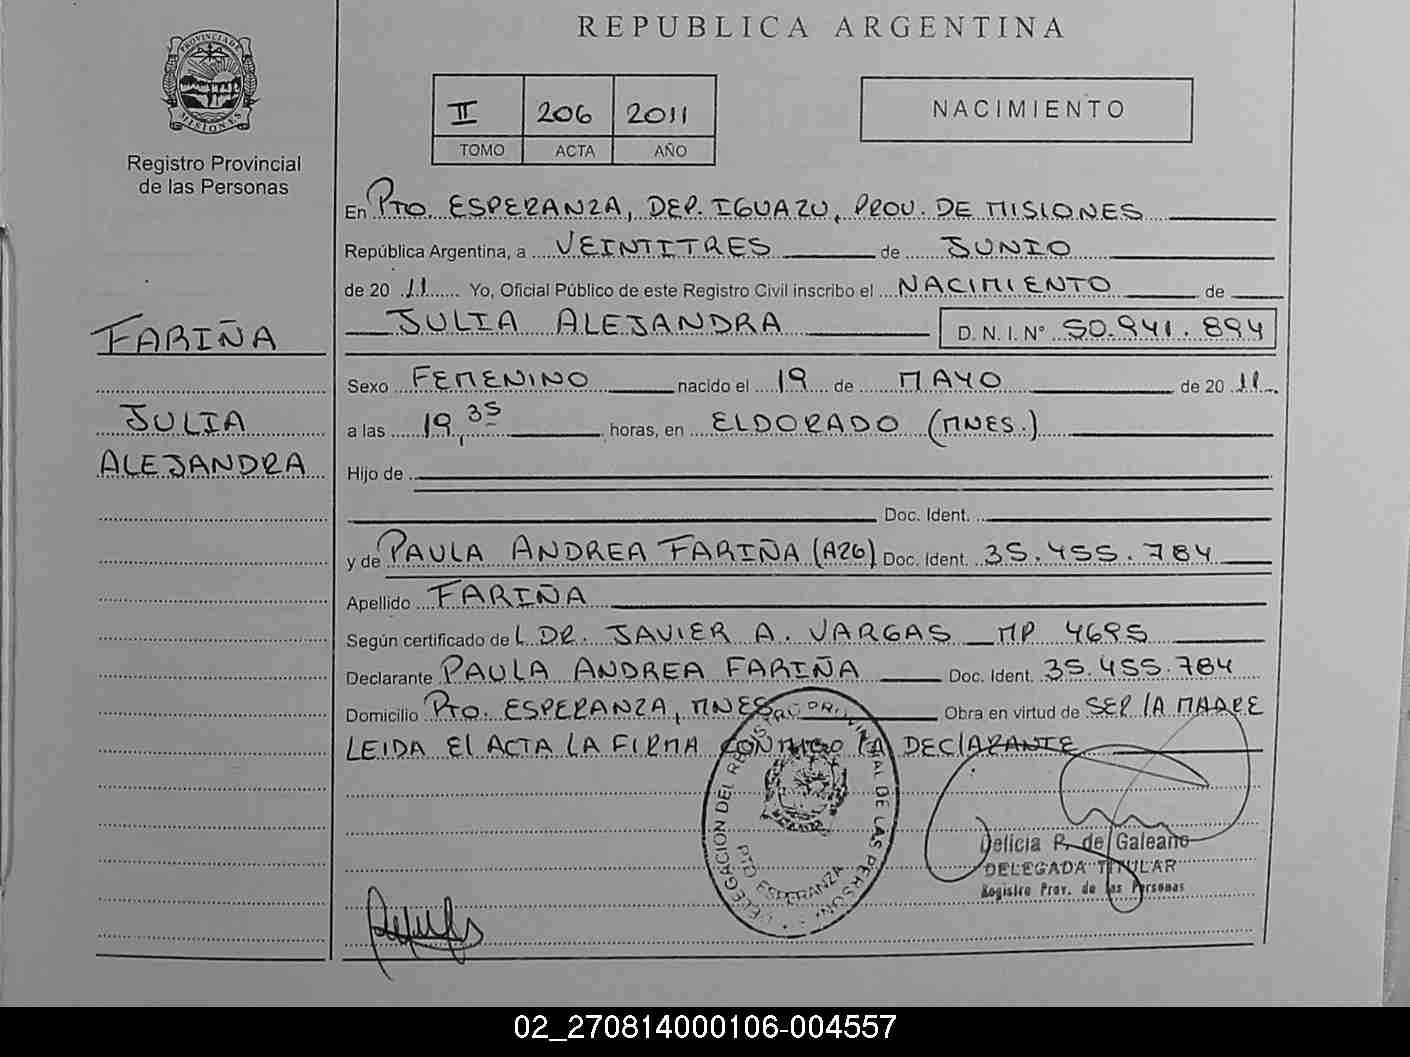 REPUBLICA ARGENTINA
PROVINCIA DE MISIONES
Registro Provincial
de las Personas
II 206 2011
TOMO ACTA AÑO
NACIMIENTO
FARIÑA
JULIA
ALEJANDRA
En PTO. ESPERANZA, DEP. IGUAZU, PROV. DE MISIONES
República Argentina, a VEINTITRES de JUNIO
de 20 11 Yo, Oficial Público de este Registro Civil inscribo el NACIMIENTO de
JULIA ALEJANDRA D. N. I. N° 50.941.894
Sexo FEMENINO nacido el 19 de MAYO de 20 11
a las 19,35 horas, en ELDORADO (MNES.)
Hijo de
Doc. Ident.
y de PAULA ANDREA FARIÑA (A20) Doc. Ident. 35.455.784
Apellido FARIÑA
Según certificado de L DR. JAVIER A. VARGAS MP 4695
Declarante PAULA ANDREA FARIÑA Doc. Ident. 35.455.784
Domicilio PTO. ESPERANZA, MNES Obra en virtud de SER LA MADRE
LEIDA El ACTA LA FIRMA CONMIGO LA DECLARANTE
DELEGACION DEL REGISTRO PROVINCIAL DE LAS PERSONAS
PTO ESPERANZA
Delicia R. de Galeano
DELEGADA TITULAR
Registro Prov. de las Personas
02_270814000106-004557